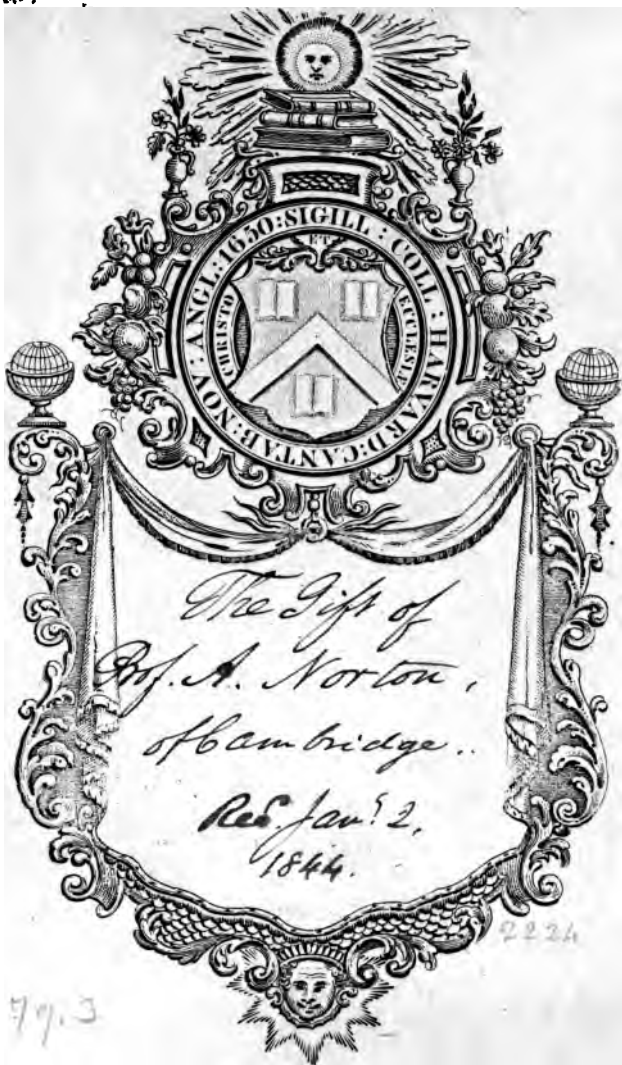 SIGILL : COLL : HARVARD : CANTAB : NOV : ANGL : 1650 :
CHRISTO
ET
ECCLESIÆ
The Gift of
Prof. A. Norton,
of Cambridge.
Recd. Jany. 2,
1844.
2224